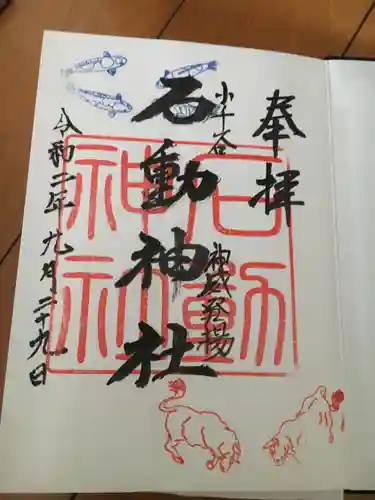 奉拝
小千谷
石動神社
神威発揚
令和二年九月二十九日
石動
神社